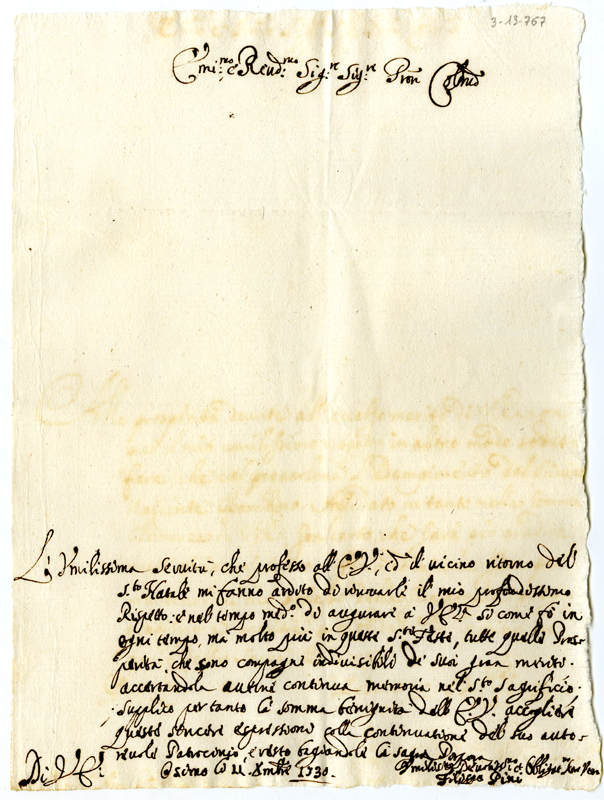 3-13-767
Emi.mo e Reud.mo Sig.re Sig.re Pron Colmo
L'Vmilissima Seruitù, che professo all'E.V., ed il vicino ritorno del
S.to Natale mi fanno ardito di rinouarle il mio profondissimo
Rispetto: e nel tempo med.o di augurare à V.E. si come fò in
ogni tempo, ma molto più in queste S.te Feste, tutte quelle Pros-
perità, che sono compagne indiuisibili de' suoi gran meriti.
accertandola auerne continua memoria nel S.to Sagrificio.
Supplico per tanto la somma benignità dell'E.V. accogliere
queste sincere espressioni colla continuatione del suo auto-
reuole Patrocinio, e resto baciandole la sagra Porpora
Di V.E.
Osimo li 11 Xmbre 1730.
Vmilissimo Deuotiss.o et Obligat.o Ser Vero
Filippo Pini